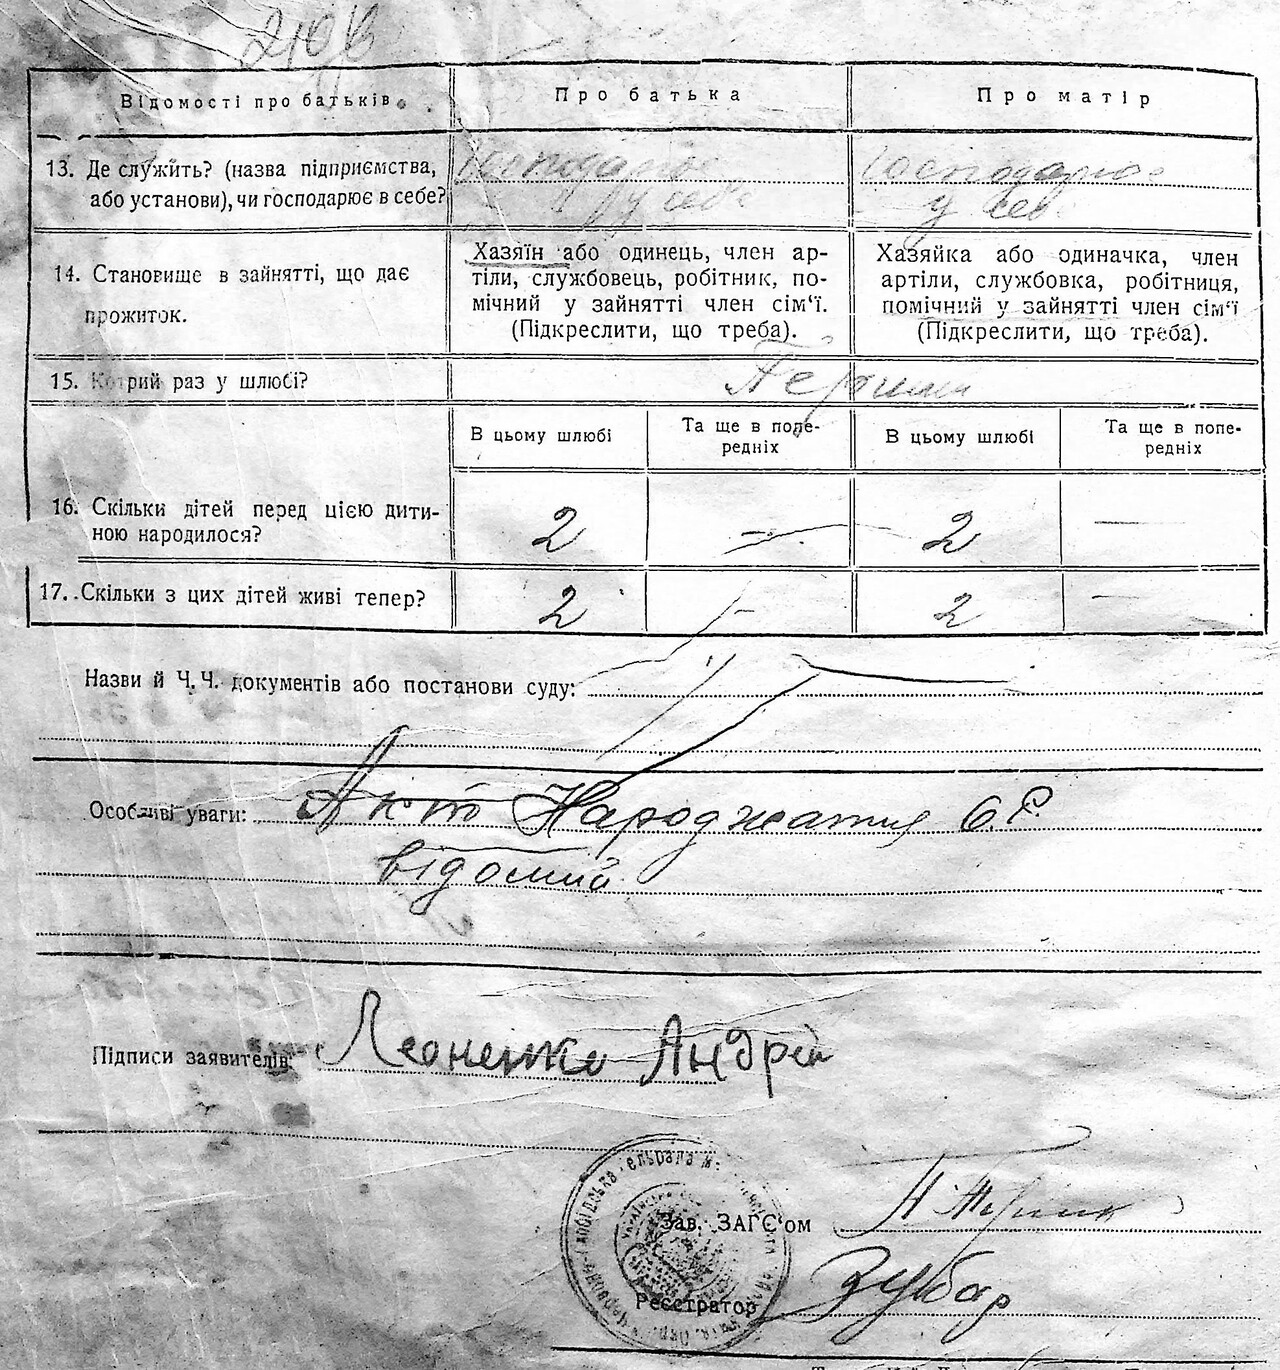 210
Відомості про батьків
Про батька
Про матір
13. Де служить? (назва підприємства, або установи), чи господарює в себе?
Господарює
у себе
Господарює
у себе
14. Становище в зайнятті, що дає
прожиток.
Хазяїн або одинець, член ар-
тіли, службовець, робітник, по-
мічний у зайнятті член сім'ї.
(Підкреслити, що треба).
Хазяйка або одиначка, член
артіли, службовка, робітниця,
помічний у зайнятті член сім'ї
(Підкреслити, що треба).
15. Котрий раз у шлюбі?
В цьому шлюбі
Та ще в попе-
редніх
В цьому шлюбі
Та ще в попе-
редніх
16. Скільки дітей перед цією дити-
ною народилося?
2 — 2 —
17. Скільки з цих дітей живі тепер?
2 — 2 —
Назви й Ч.Ч. документів або постанови суду:
Особливі уваги: Акт Народжатия
відомий
Підписи заявителів: Леоненко Андрій
Зав. ЗАГС'ом
Реєстратор Зубар